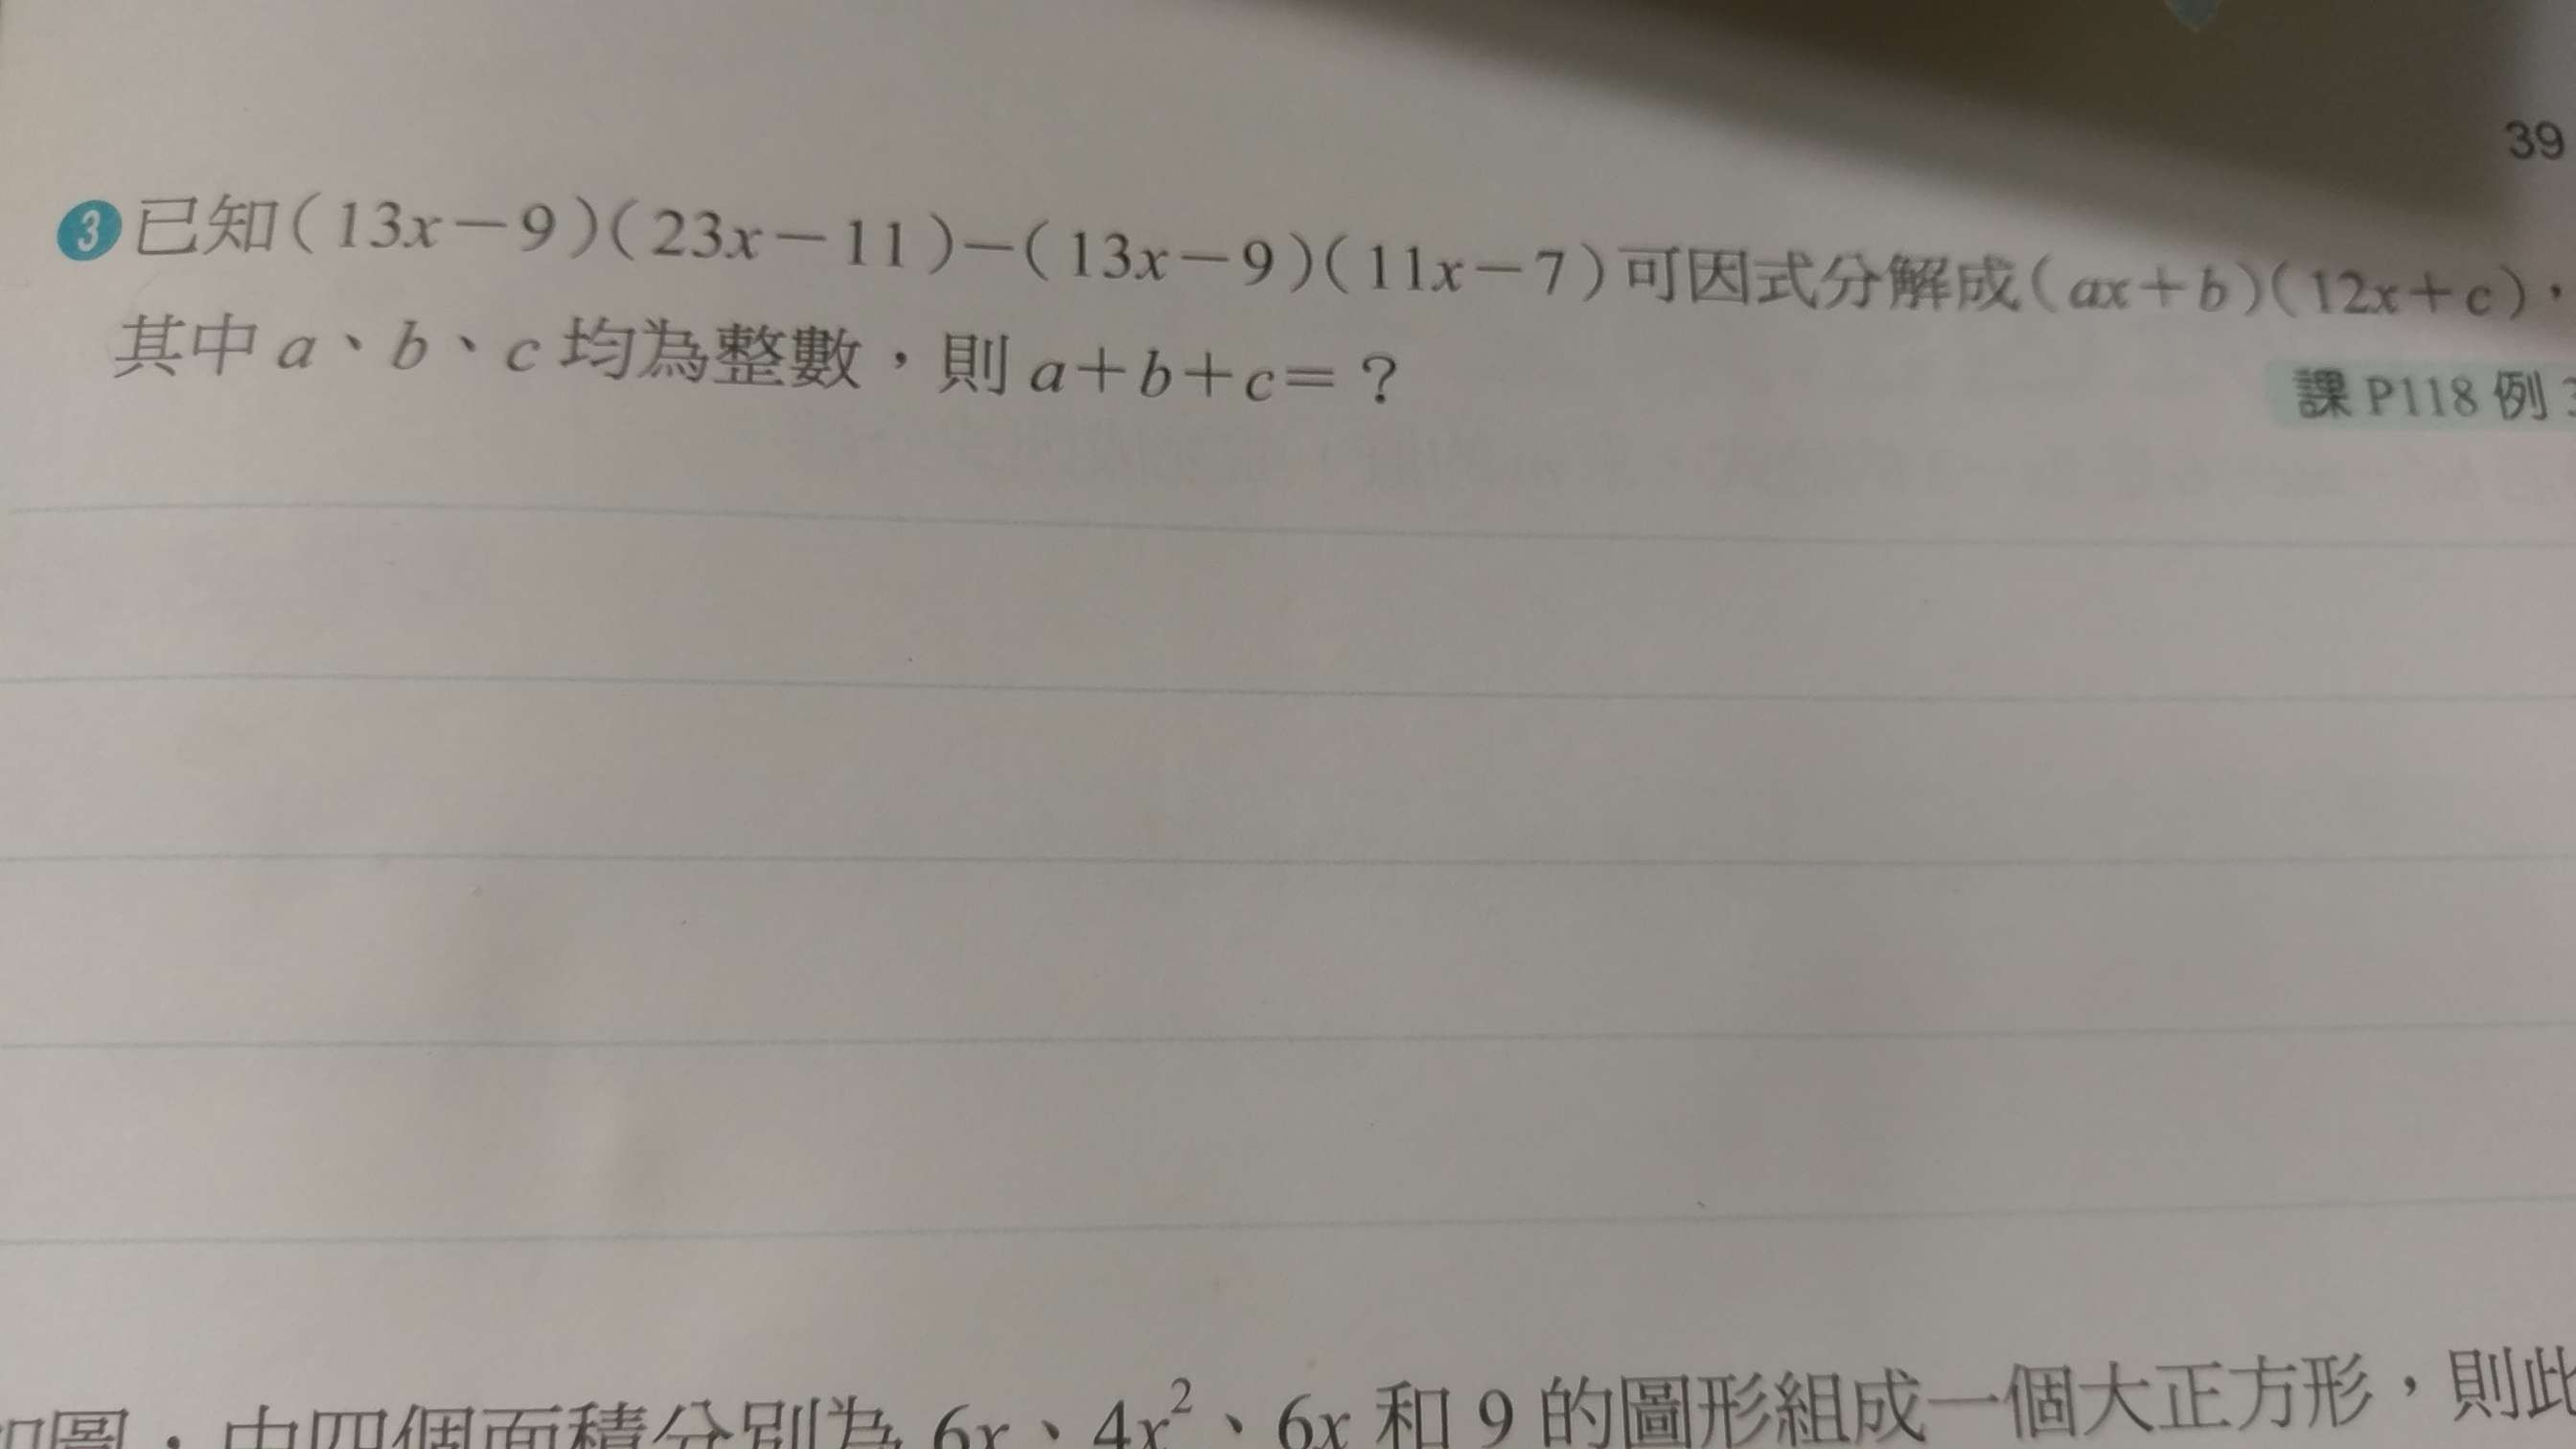 39
3 已知(13x-9)(23x-11)-(13x-9)(11x-7)可因式分解成(ax+b)(12x+c),
其中a、b、c均為整數,則a+b+c=?
課P118例
如圖,由四個面積分別為6x、4x²、6x和9的圖形組成一個大正方形,則此